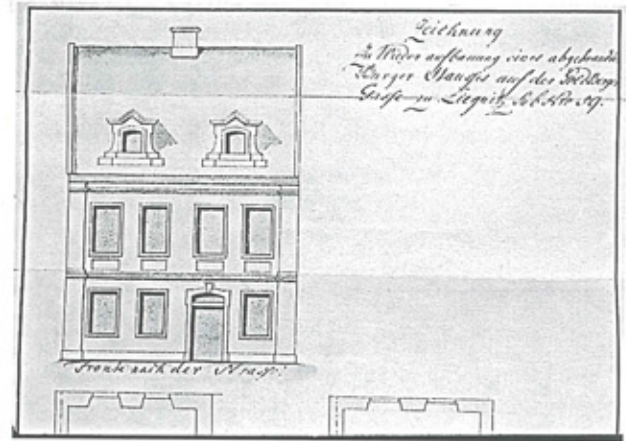 Zeichnung
Zu Wieder aufbauung eines abgebrandten
Bürger Hauses auf der Goldberger
Gasse zu Liegnitz sub Nro
Fronte nach der Straße